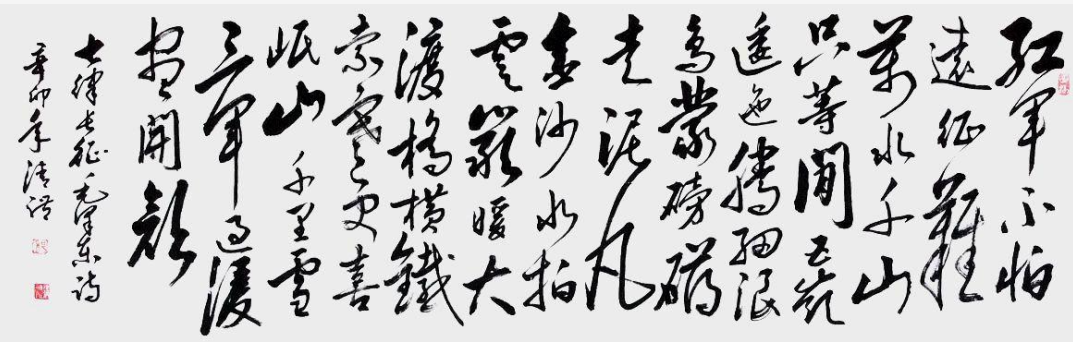 紅軍不怕
遠征難
萬水千山
只等閒五岭
逶迤騰細浪
烏蒙磅礴
走泥丸
金沙水拍
雲巖暖大
渡橋橫鐵
索寒更喜
岷山千里雪
三軍過後
盡開顏
七律長征毛澤東詩
辛卯年清